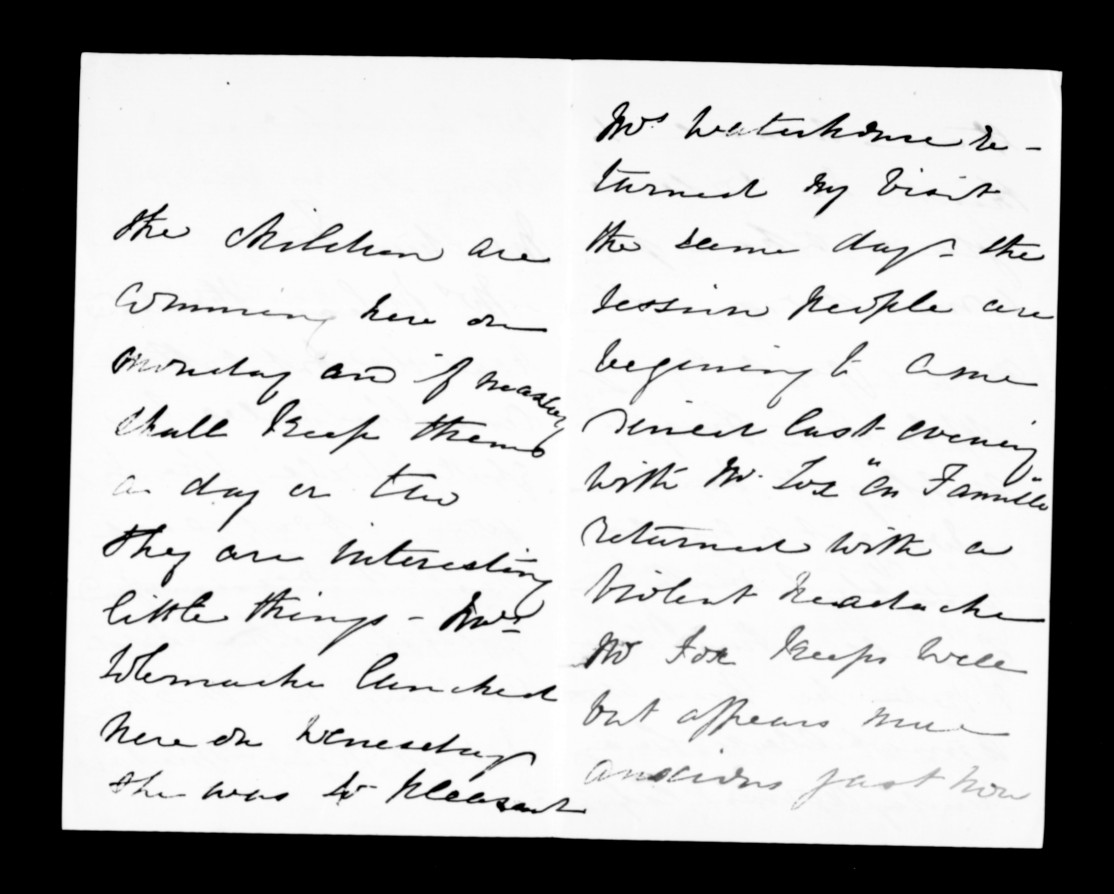 the children are
comming here on
monday and if nearly
shall Keep them
a day or two
they are interesting
little things - Mrs
lunched
here on Wenesday
she was so pleasant
Mrs Waterhouse re-
turned my visit
the same day - the
session people are
begining to come
dined last evening
with Mr Fox "en Famille"
returned with a
violent headache
Mr Fox Keeps well
but appears
anxious just now